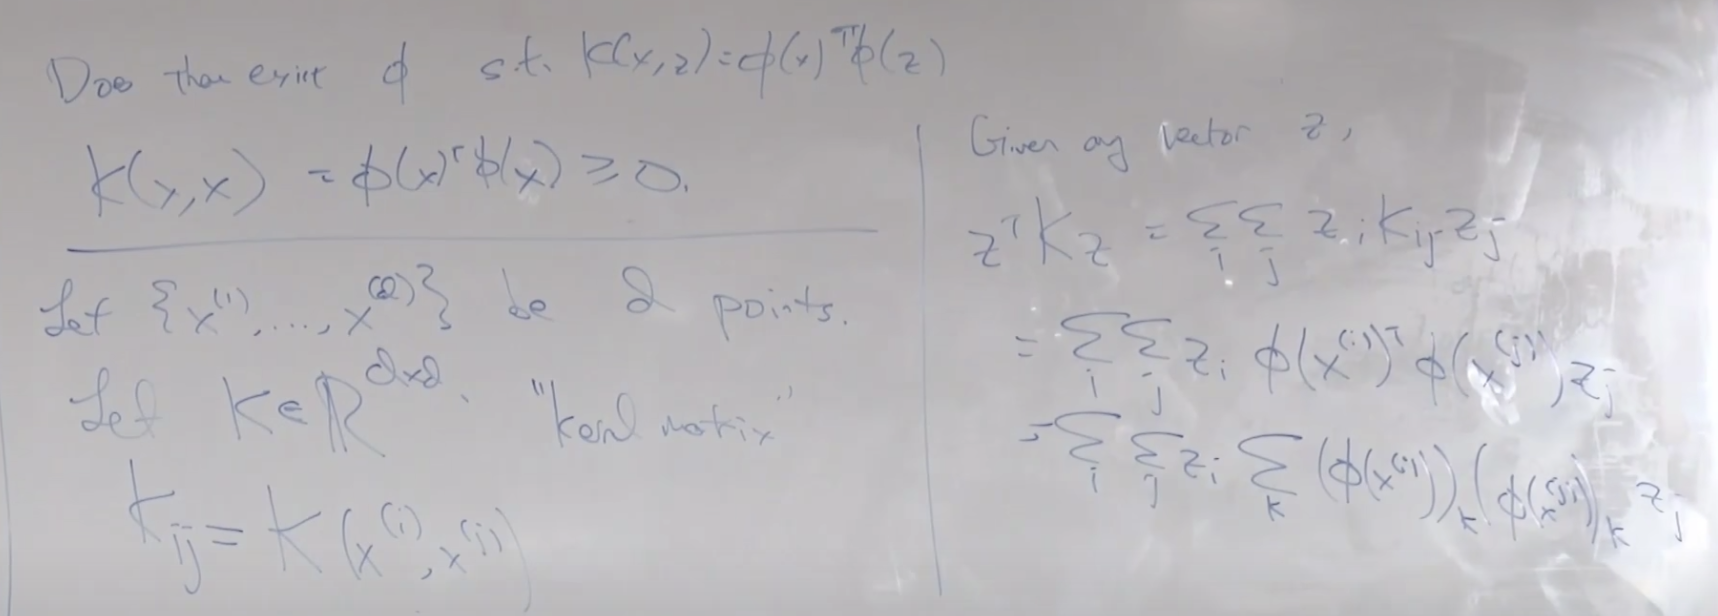 Does there exist ϕ s.t. K(x,z)=ϕ(x)ᵀϕ(z)
K(x,x) = ϕ(x)ᵀϕ(x) ≥ 0.
Let {x⁽¹⁾, ..., x⁽ᵈ⁾} be d points.
Let K∈ℝᵈˣᵈ. "Kernel matrix"
K_ij = K(x⁽ⁱ⁾, x⁽ʲ⁾)
Given any vector z,
zᵀKz = Σ_i Σ_j z_i K_ij z_j
= Σ_i Σ_j z_i ϕ(x⁽ⁱ⁾)ᵀ ϕ(x⁽ʲ⁾) z_j
= Σ_i Σ_j z_i Σ_k (ϕ(x⁽ⁱ⁾))_k (ϕ(x⁽ʲ⁾))_k z_j